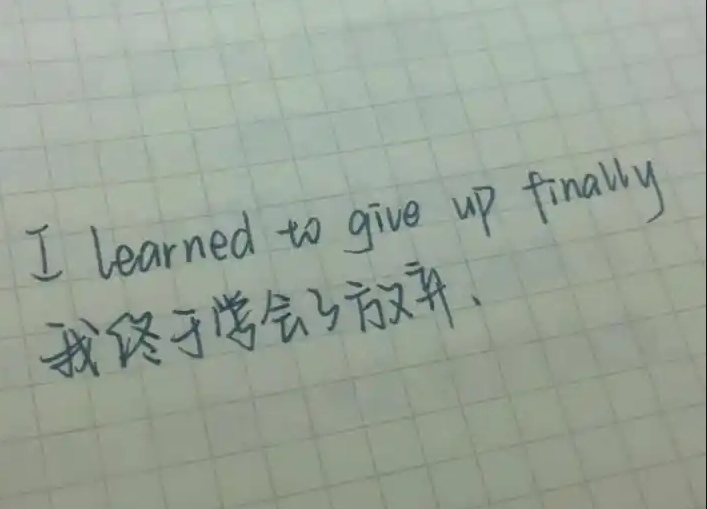 I learned to give up finally
我终于学会了放弃、